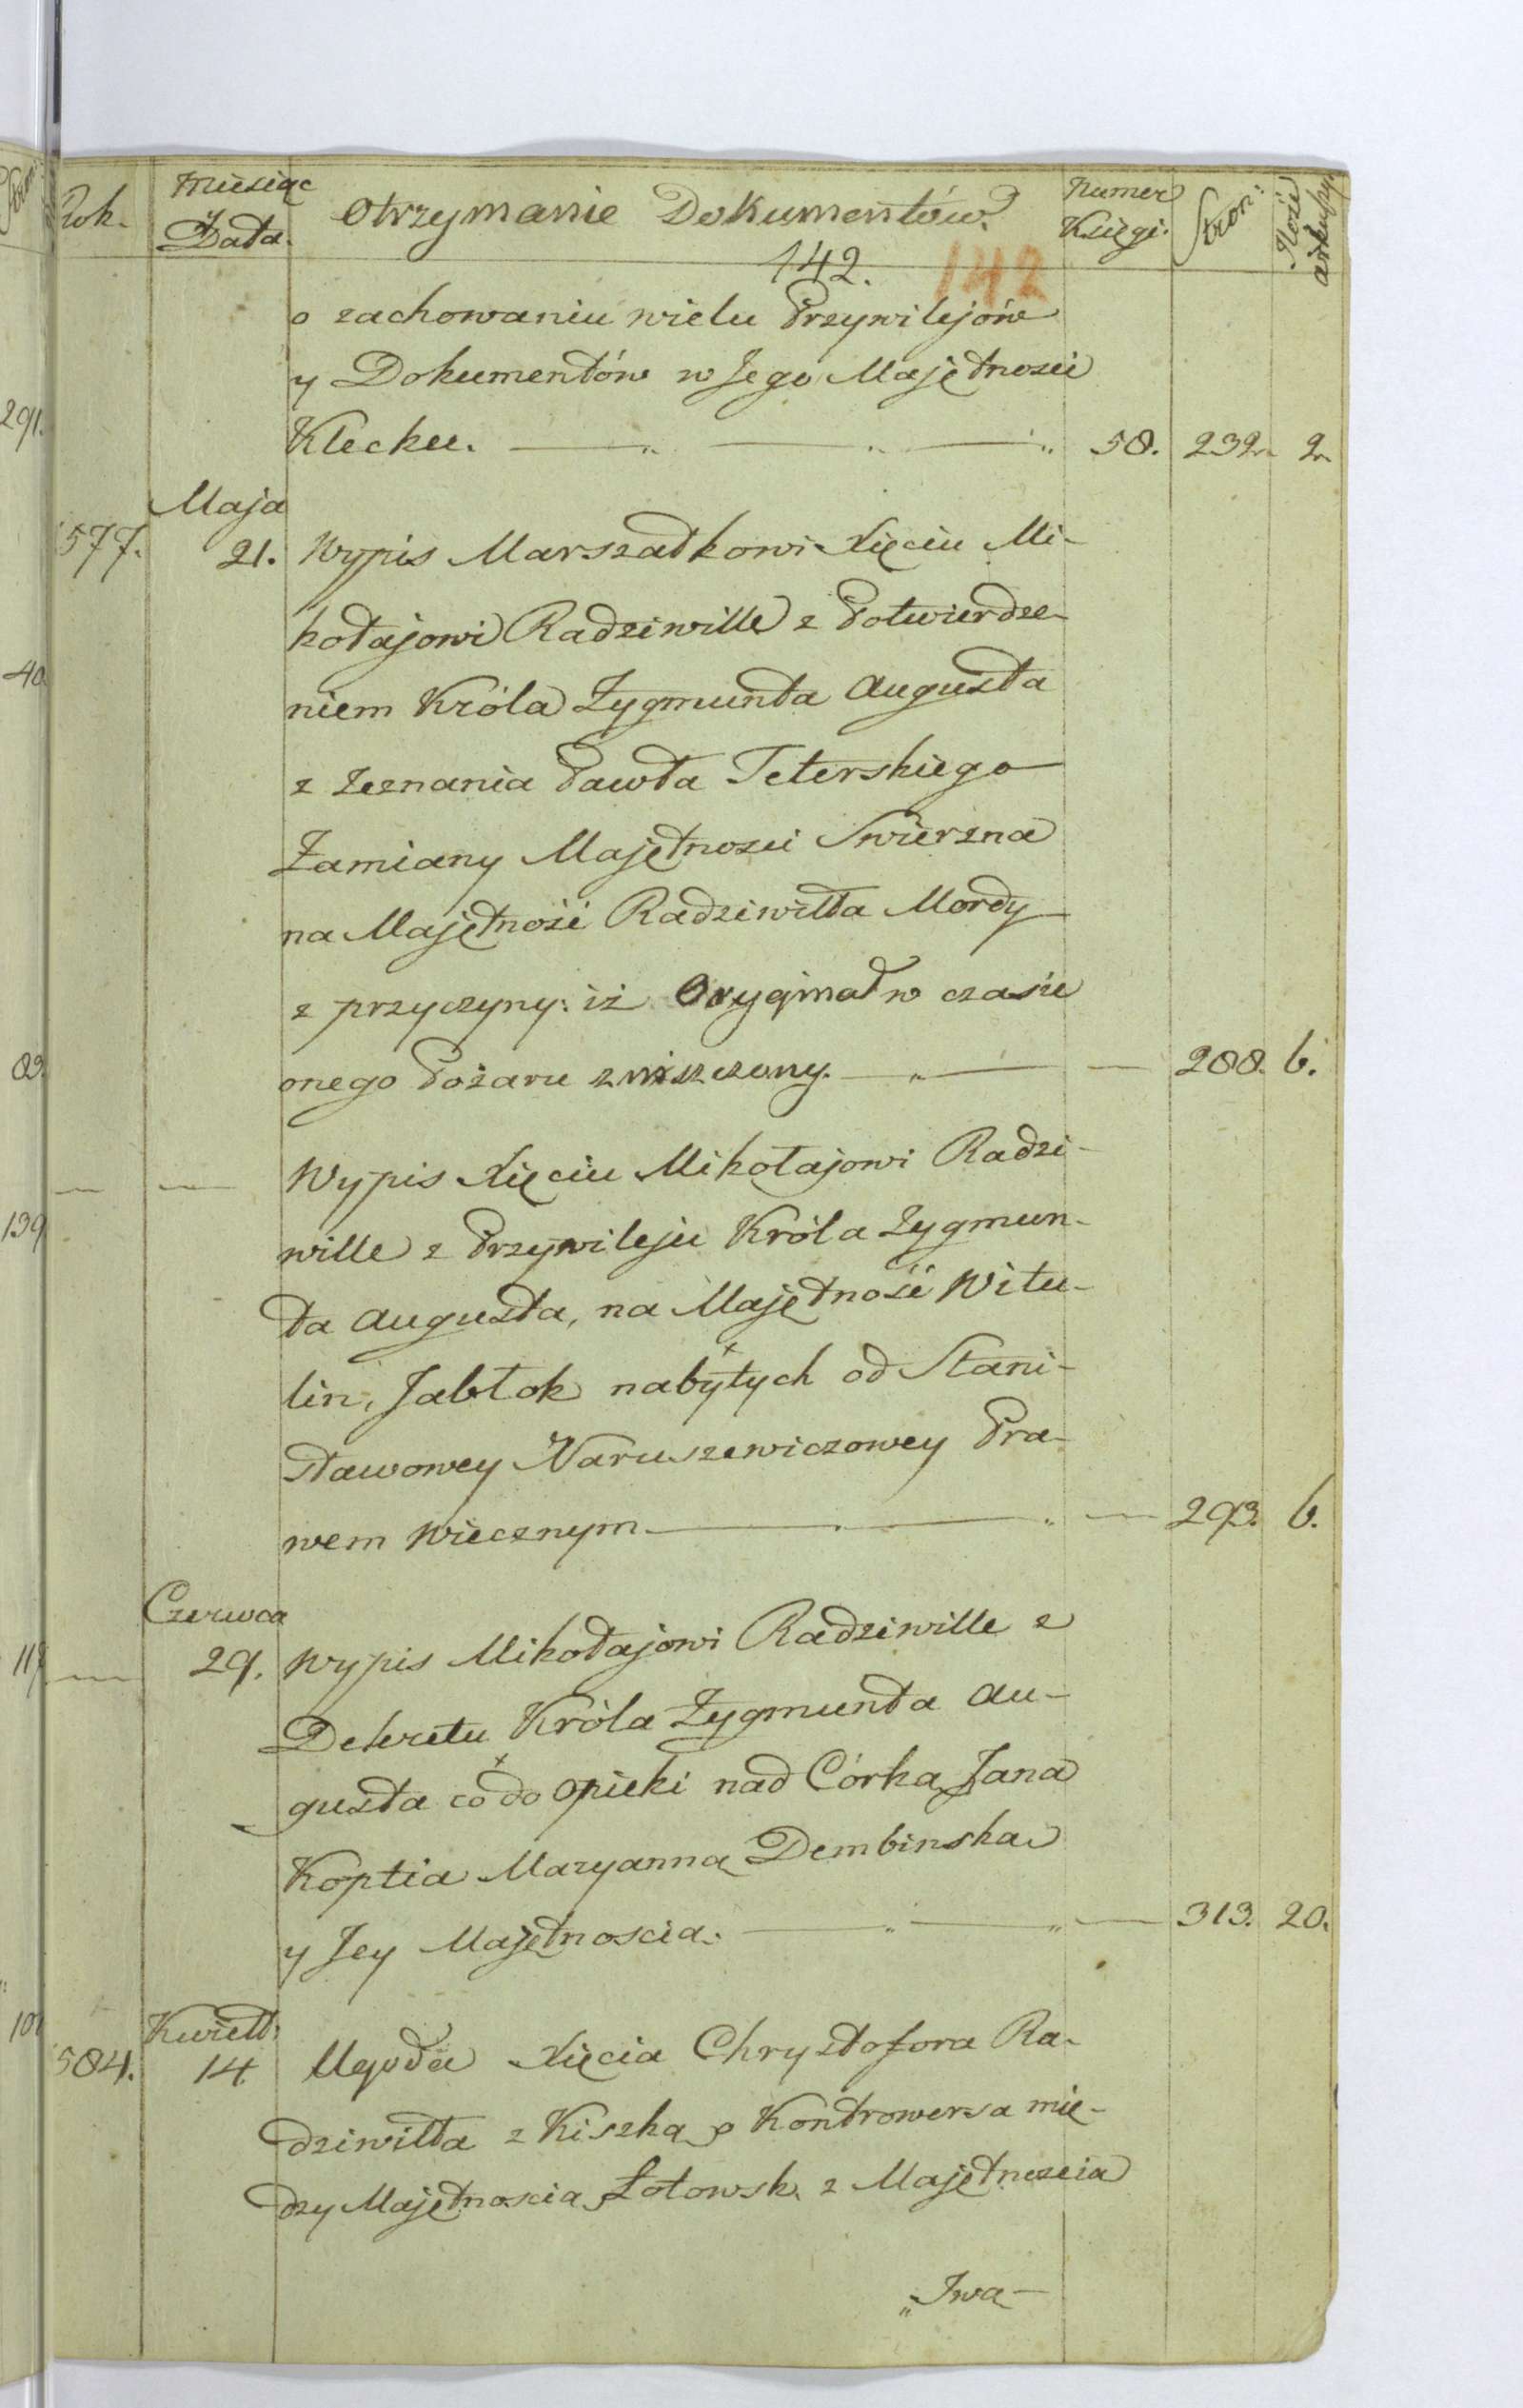 Rok.
Miesiąc
y Data.
Otrzymanie Dokumentów.
Numer
Księgi.
Stron:
Ilość
arkuszy.
142.
142
o zachowaniu wielu Przywilejów
y Dokumentów w Jego Majętnosci
Klecku. — „ — „ — „ 58. 232. 2.
Maja
577. 21. Wypis Marszałkowi Xięciu Mi-
kołajowi Radziwille z Potwierdze-
niem Króla Zygmunta Augusta
z zeznania Pawła Teterskiego
Zamiany Majętnosci Swierzna
na Majętność Radziwiłła Mordy
z przyczyny: iż Oryginał w czasie
onego Pożaru zniszczony. — „ — — 288. 6.
— — Wypis Xięciu Mikołajowi Radzi-
wille z Przywileju Króla Zygmun-
ta Augusta, na Majętność Witu-
lin, Jabłok nabytych od Stani-
sławowey Naruszewiczowey Pra-
wem Wiecznym — „ — „ — 293. 6.
Czerwca
— 29. Wypis Mikołajowi Radziwille z
Dekretu Króla Zygmunta Au-
gusta co do opieki nad Córką Jana
Koptia Maryanną Dembinska
y Jey Majętnoscia. — „ — „ — 313. 20.
Kwiet:
584. 14. Ugoda Xięcia Chrysztofora Ra-
dziwiłła z Kiszką o Kontrowersa mię-
dzy Majętnoscią Łotowsk. z Majętnoscia
„Iwa—
291.
40
139